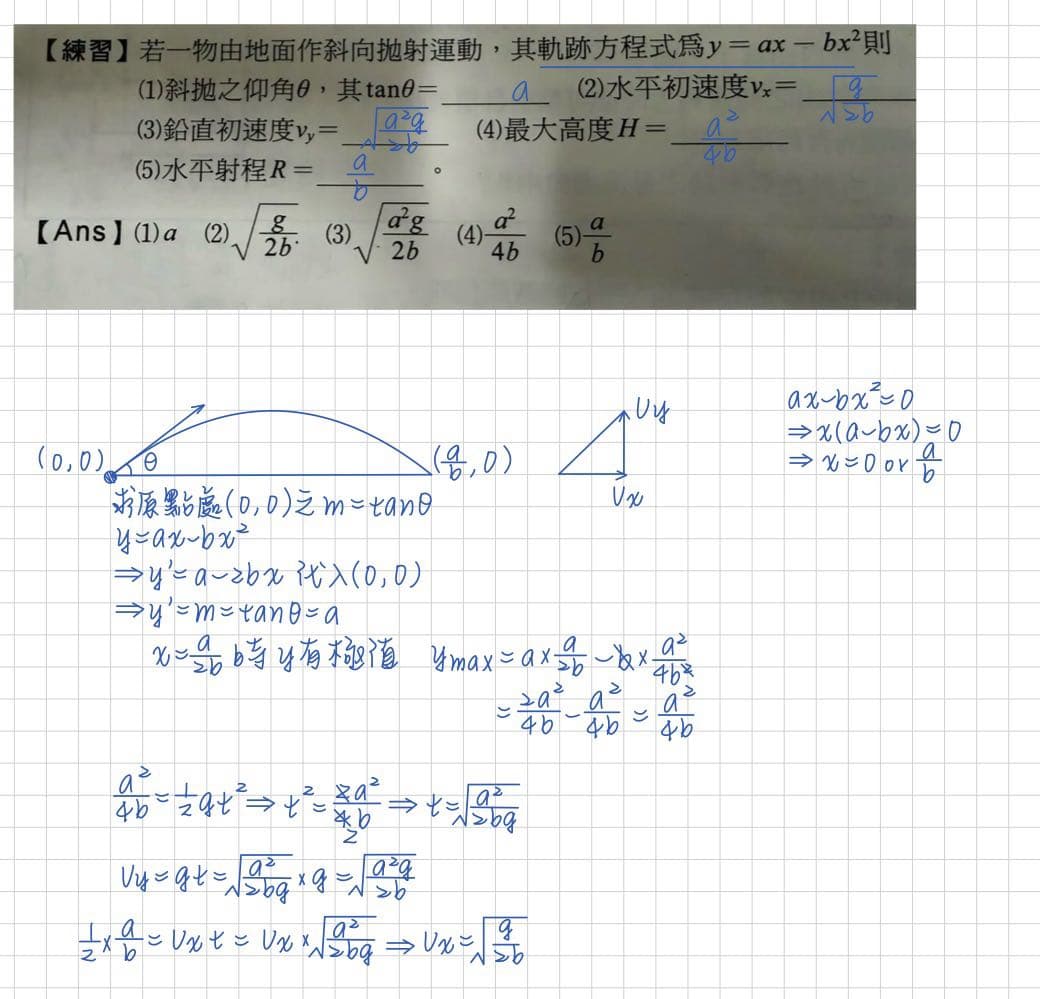 【練習】若一物由地面作斜向拋射運動，其軌跡方程式為y = ax − bx²則
(1)斜拋之仰角θ，其tanθ= a (2)水平初速度vₓ= √(g/2b)
(3)鉛直初速度v_y= √(a²g/2b) (4)最大高度H= a²/4b
(5)水平射程R= a/b 。
【Ans】(1)a (2)√(g/2b) (3)√(a²g/2b) (4)a²/4b (5)a/b
(0,0) θ (a/b, 0)
Vy
Vx
ax-bx²=0
⇒x(a-bx)=0
⇒ x=0 or a/b
求原點處(0,0)之 m=tanθ
y=ax-bx²
⇒y'=a-2bx 代入(0,0)
⇒y'=m=tanθ=a
x=a/2b 時 y有極值 ymax=a×a/2b - b×a²/4b²
=2a²/4b - a²/4b = a²/4b
a²/4b=1/2gt² ⇒ t²=2a²/4b 2 ⇒ t=√(a²/2bg)
Vy=gt=√(a²/2bg)×g=√(a²g/2b)
1/2×a/b=Vxt=Vx×√(a²/2bg) ⇒ Vx=√(g/2b)